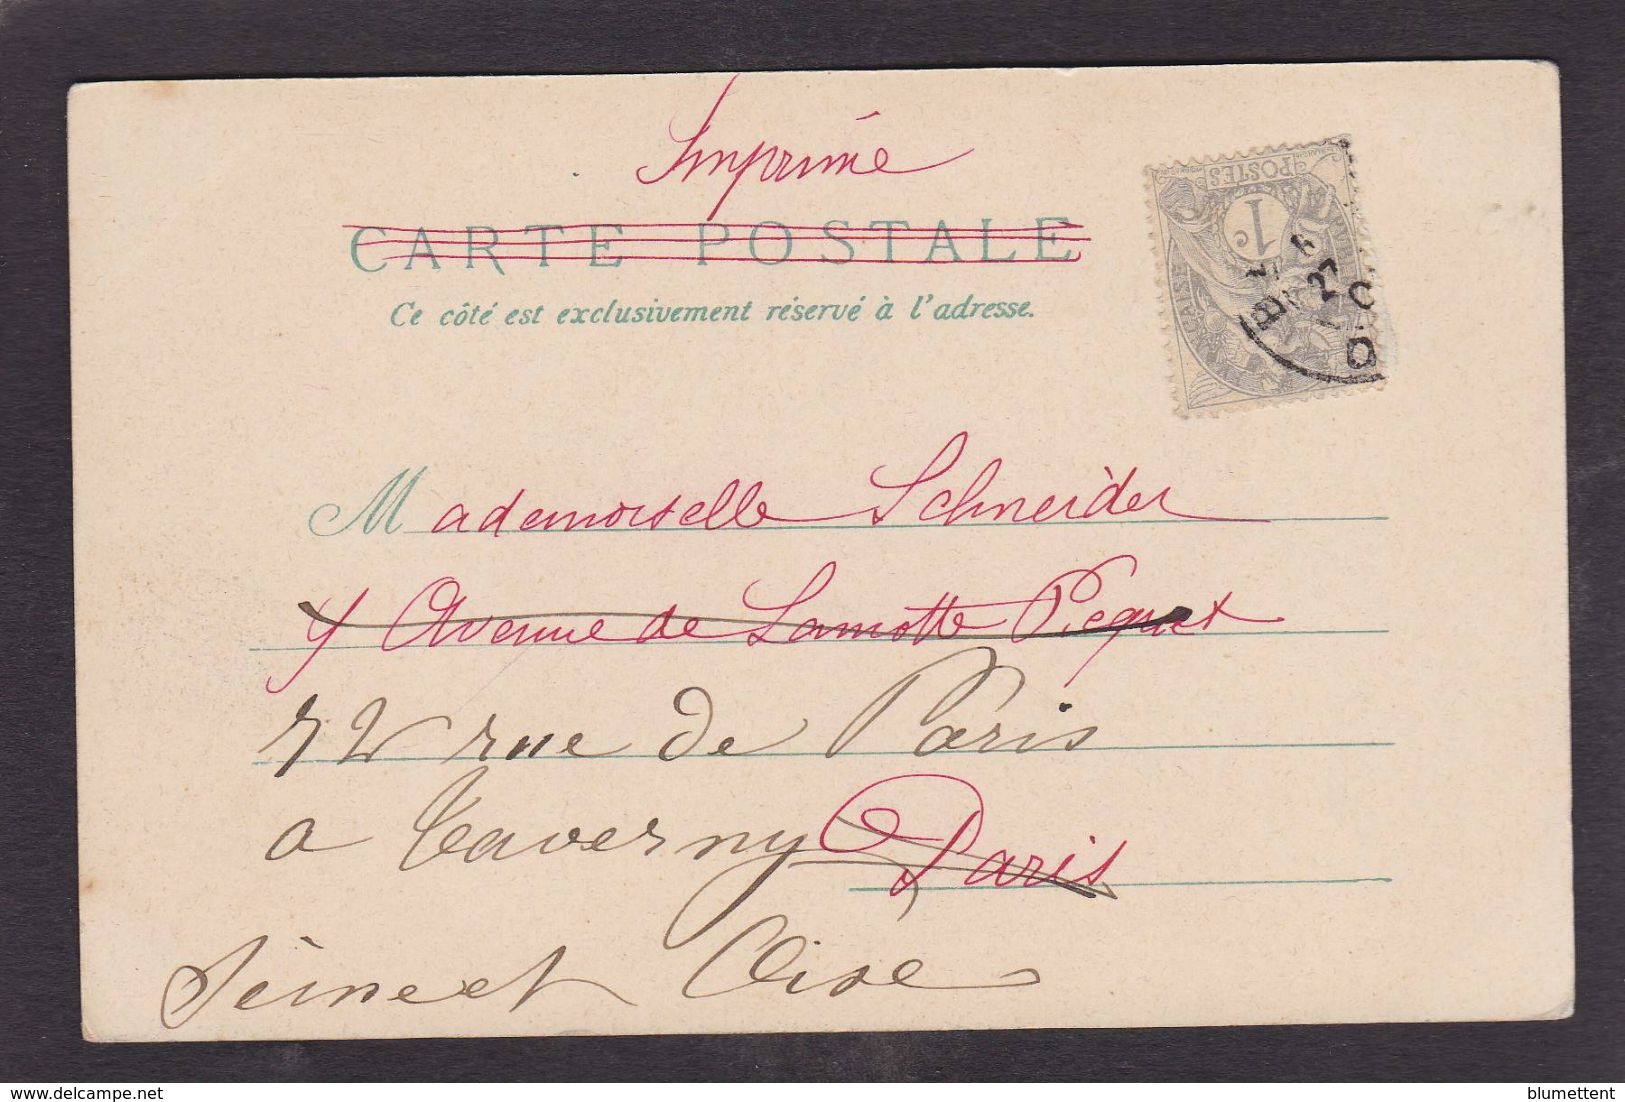 Imprimé
CARTE POSTALE
Ce côté est exclusivement réservé à l'adresse.
POSTES
1c
27
Mademoiselle Schneider
Avenue de Lamotte Piequet
72 rue de Paris
a Taverny
Paris
Seine et Oise
blumettent